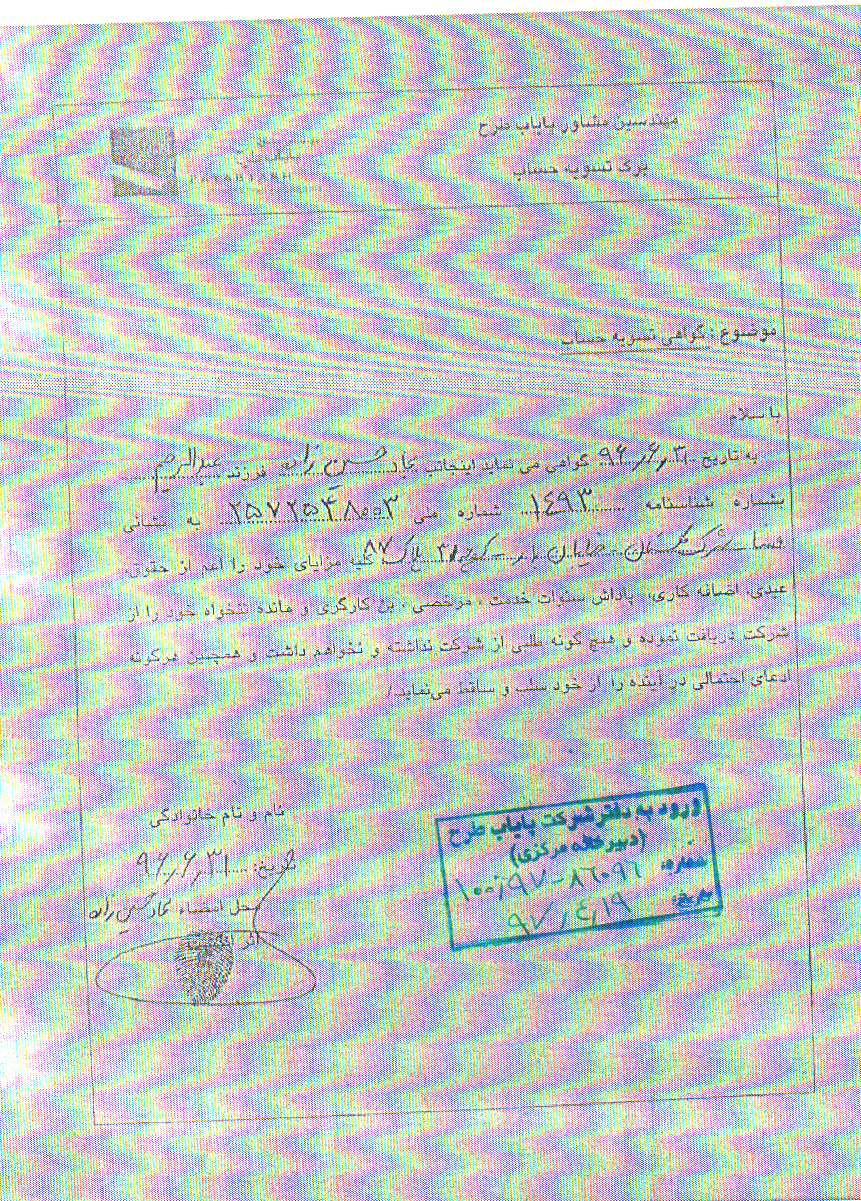 مهندسین مشاور پایاب طرح
برگ تسویه حساب
پایاب طرح
PAYABTARH
موضوع : گواهی تسویه حساب
با سلام
به تاریخ ۹۶٫۶٫۳۱ گواهی می نماید اینجانب عماد حسین زاده فرزند عبدالرحیم
بشماره شناسنامه ۱۴۹۳ شماره ملی ۲۵۷۲۵۴۸۰۰۳ به نشانی
فسا شهرک گلستان خیابان ۱ کوچه ۳۱ پلاک ۸۷ کلیه مزایای خود را اعم از حقوق،
عیدی، اضافه کاری، پاداش سنوات خدمت ، مرخصی ، بن کارگری و مانده تنخواه خود را از
شرکت دریافت نموده و هیچ گونه طلبی از شرکت نداشته و نخواهم داشت و همچنین هرگونه
ادعای احتمالی در آینده را از خود سلب و ساقط می‌نماید./
نام و نام خانوادگی
تاریخ: ۹۶٫۶٫۳۱
محل امضاء عماد حسین زاده
اثر
ورود به دفتر شرکت پایاب طرح
(دبیرخانه مرکزی)
شماره: ۱۰۰٫۹۷-۸۶۰۹۶
تاریخ: ۹۷٫۴٫۱۹